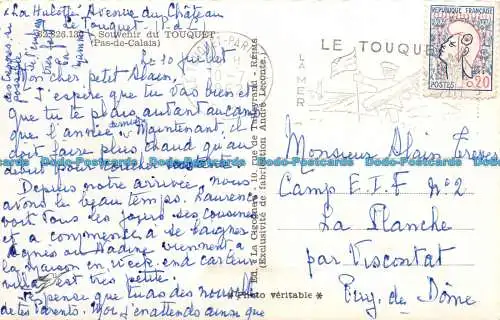 "La Hulotte" Avenue du Château
Le Touquet. P. de C.
62.826.13
Souvenir du TOUQUET
(Pas-de-Calais)
Le 10 Juillet
Mon cher petit Alain,
J'espère que tu vas bien et
que tu te plais autant au camp
que l'année dernière. Maintenant, il
doit faire plus chaud qu'au
début pour coucher
Depuis notre arrivée, nous
avons le beau temps. Laurence
voit tous les jours ses cousines
et a commencé à se baigner.
Agnès ou Nadine viennent à
la maison en week-end car leur
villa est très petite.
Je pense que tu as des nouvelles
de tes Parents. Moi, j'en attends ainsi que
Ed. "La Cigogne" - 10, rue de Talleyrand - REIMS
Exclusivité de fabrication André Leconte
* Photo véritable *
LE TOUQUET
LA MER
RÉPUBLIQUE FRANÇAISE
POSTES
0,20
Monsieur Alain
Camp E.I.F n°2
La Planche
par Viscontat
Puy. de Dôme
Ododo-Postcards